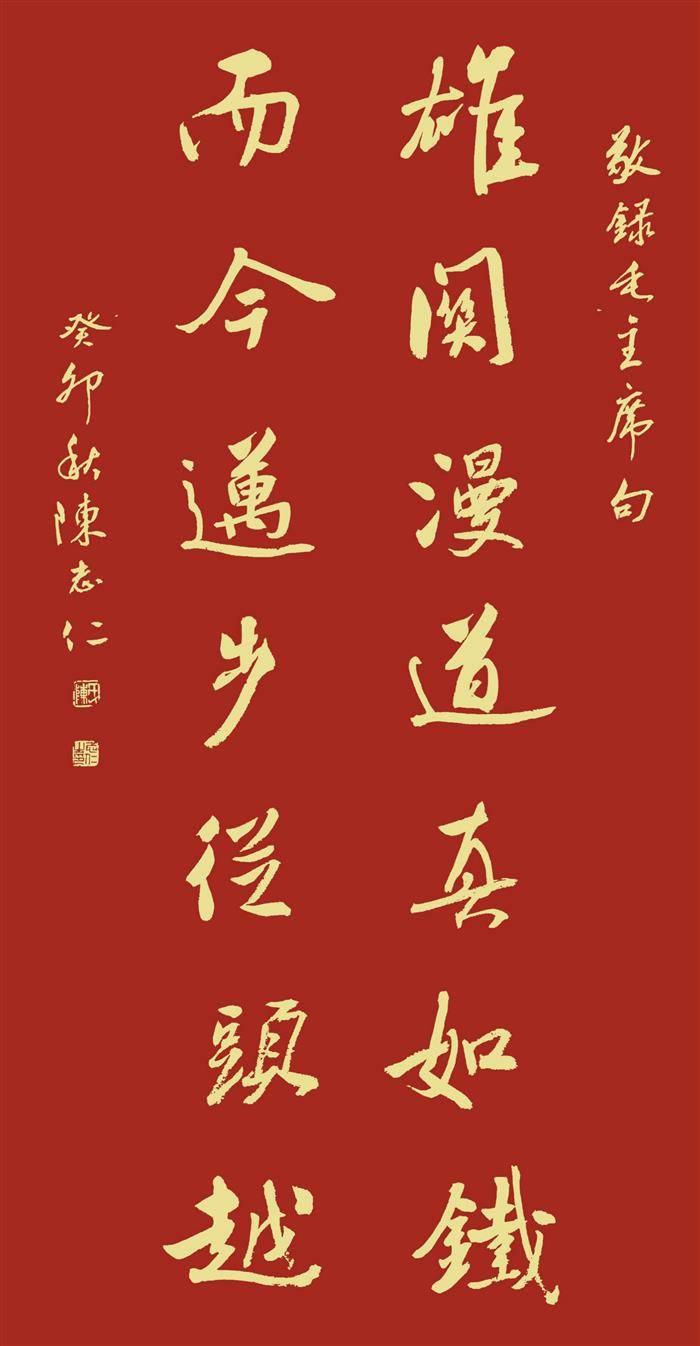 敬録毛主席句
雄関漫道真如鐵
而今邁步從頭越
癸卯秋陳志仁